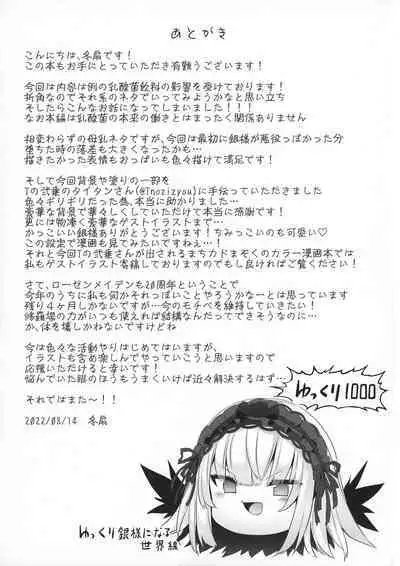 あとがき
こんにちは、冬扇です！
この本もお手にとっていただき有難うございます！
今回は内容は例の乳酸菌飲料の影響を受けております！
折角なのでそれ系のネタでいってみようかなと思い立ち
そしたらこんなお話になってしまいました！！
なお本編は乳酸菌の本来の働きとはまったく関係ありません
相変わらずの母乳ネタですが、今回は最初に銀様が悪役っぽかった分
堕ちた時の落差も大きくなったかも…
描きたかった表情もおっぱいも色々描けて満足です！
そして今回背景や塗りの一部を
Tの弐乗のタイタンさん(@Tnozizyou)に手伝っていただきました
色々ギリギリだった為、本当に助かりました…
豪華な背景で華々しくしていただけて本当に感謝です！
更には物凄く豪華なゲストイラストまで…
かっこいい銀様ありがとうございます！ちみっこいのも可愛い♡
この設定で漫画も見てみたいですねぇ…！
それと今回Tの弐乗さんが出されるまちカドまぞくのカラー漫画本では
私もゲストイラスト寄稿しておりますのでもし良ければご覧ください！
さて、ローゼンメイデンも20周年ということで
今年のうちに私も何かそれっぽいことやろうかなーとは思っています
残り4ヶ月しかないですが…今のモチベを維持していきたい！
修羅場の力がいつも使えれば結構なんだってできそうなのに…
か、体を壊しかねないですけどね
今は色々な活動やりはじめてはいますが、
イラストも含め楽しんでやっていこうと思いますので
応援いただけると幸いです！
悩んでいた眼のほうもうまくいけば近々解決するはず…
それではまた～！！
2022/08/14 冬扇
ゆっくり1000
ゆっくり銀様になる
世界線